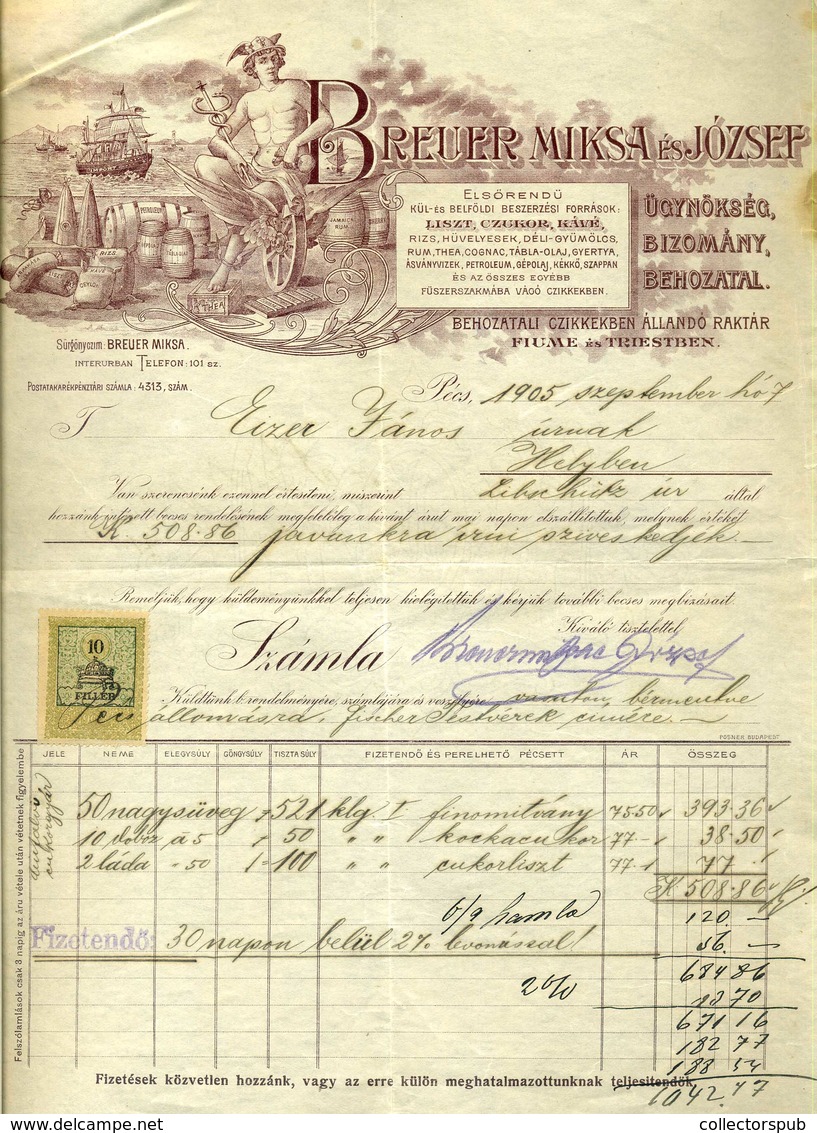 BREUER MIKSA ÉS JÓZSEF
ELSŐRENDŰ
KÜL-ÉS BELFÖLDI BESZERZÉSI FORRÁSOK:
LISZT, CZUKOR, KÁVÉ,
RIZS, HÜVELYESEK, DÉLI-GYÜMÖLCS,
RUM, THEA, COGNAC, TÁBLA-OLAJ, GYERTYA,
ÁSVÁNYVIZEK, PETROLEUM, GÉPOLAJ, KÉKKŐ, SZAPPAN
ÉS AZ ÖSSZES EGYÉBB
FÜSZERSZAKMÁBA VÁGÓ CZIKKEKBEN.
ÜGYNÖKSÉG,
BIZOMÁNY,
BEHOZATAL.
IMPORT
PETROLEUM
JAMAICA RUM
SHERRY
TÁBLA OLAJ
RIZS
KÁVÉ
CEYLON
THEA
BEHOZATALI CZIKKEKBEN ÁLLANDÓ RAKTÁR
FIUME ÉS TRIESTBEN.
Sürgönyczim: BREUER MIKSA.
INTERURBAN TELEFON: 101 SZ.
POSTATAKARÉKPÉNZTÁRI SZÁMLA: 4313, SZÁM.
Pécs, 1905 szeptember hó 7
T Eizer János úrnak
Helyben
Van szerencsénk ezennel értesíteni, miszerint Libschütz úr által
hozzánk intézett becses rendelésének megfelelőleg a kivánt árut mai napon elszállitottuk, melynek értékét
K. 508.86 javunkra irni sziveskedjék.
Reméljük, hogy küldeményünkkel teljesen kielégitettük és kérjük további becses megbizásait.
Kiváló tisztelettel
Számla
10
FILLÉR
Küldtünk b. rendelményére, számlájára és veszélyére bérmentve
Pécs állomásra, Fischer Testvérek cimére.
POSNER BUDAPEST
JELE NEME EGYSÚLY GÖNGYSÚLY TISZTA SÚLY FIZETENDŐ ÉS PERELHETŐ PÉCSETT ÁR ÖSSZEG
cukorgyár
50 nagysüveg 521 klg. I finomitvány 75.50 393.36
10 doboz á 5 50 " " kockacukor 77 38.50
2 láda " 50 100 " " cukorliszt 77 77
K 508.86
120.—
56.—
Fizetendő: 30 napon belül 2% levonással!
684 86
2% 13 70
671 16
182 77
188 54
1042.47
Fizetések közvetlen hozzánk, vagy az erre külön meghatalmazottunknak teljesitendők.
Felszólamlások csak 3 napig az áru vétele után vétetnek figyelembe
collectorspub